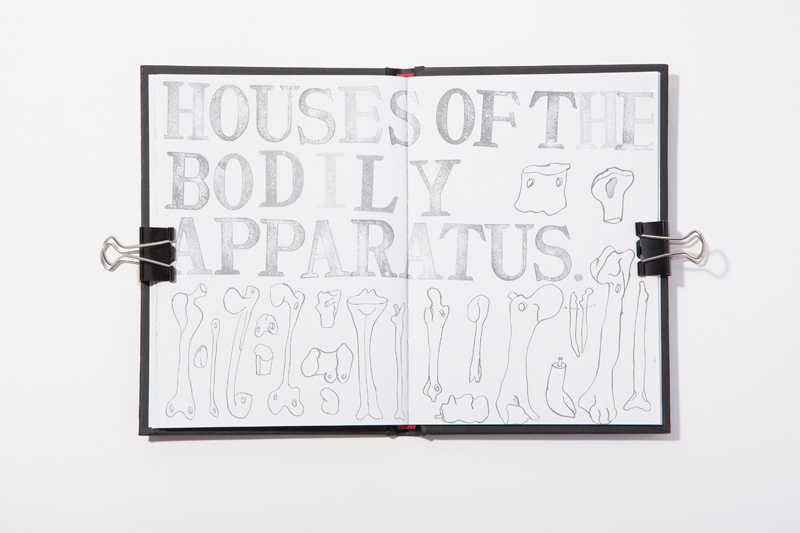 HOUSES OF THE
BODILY
APPARATUS.